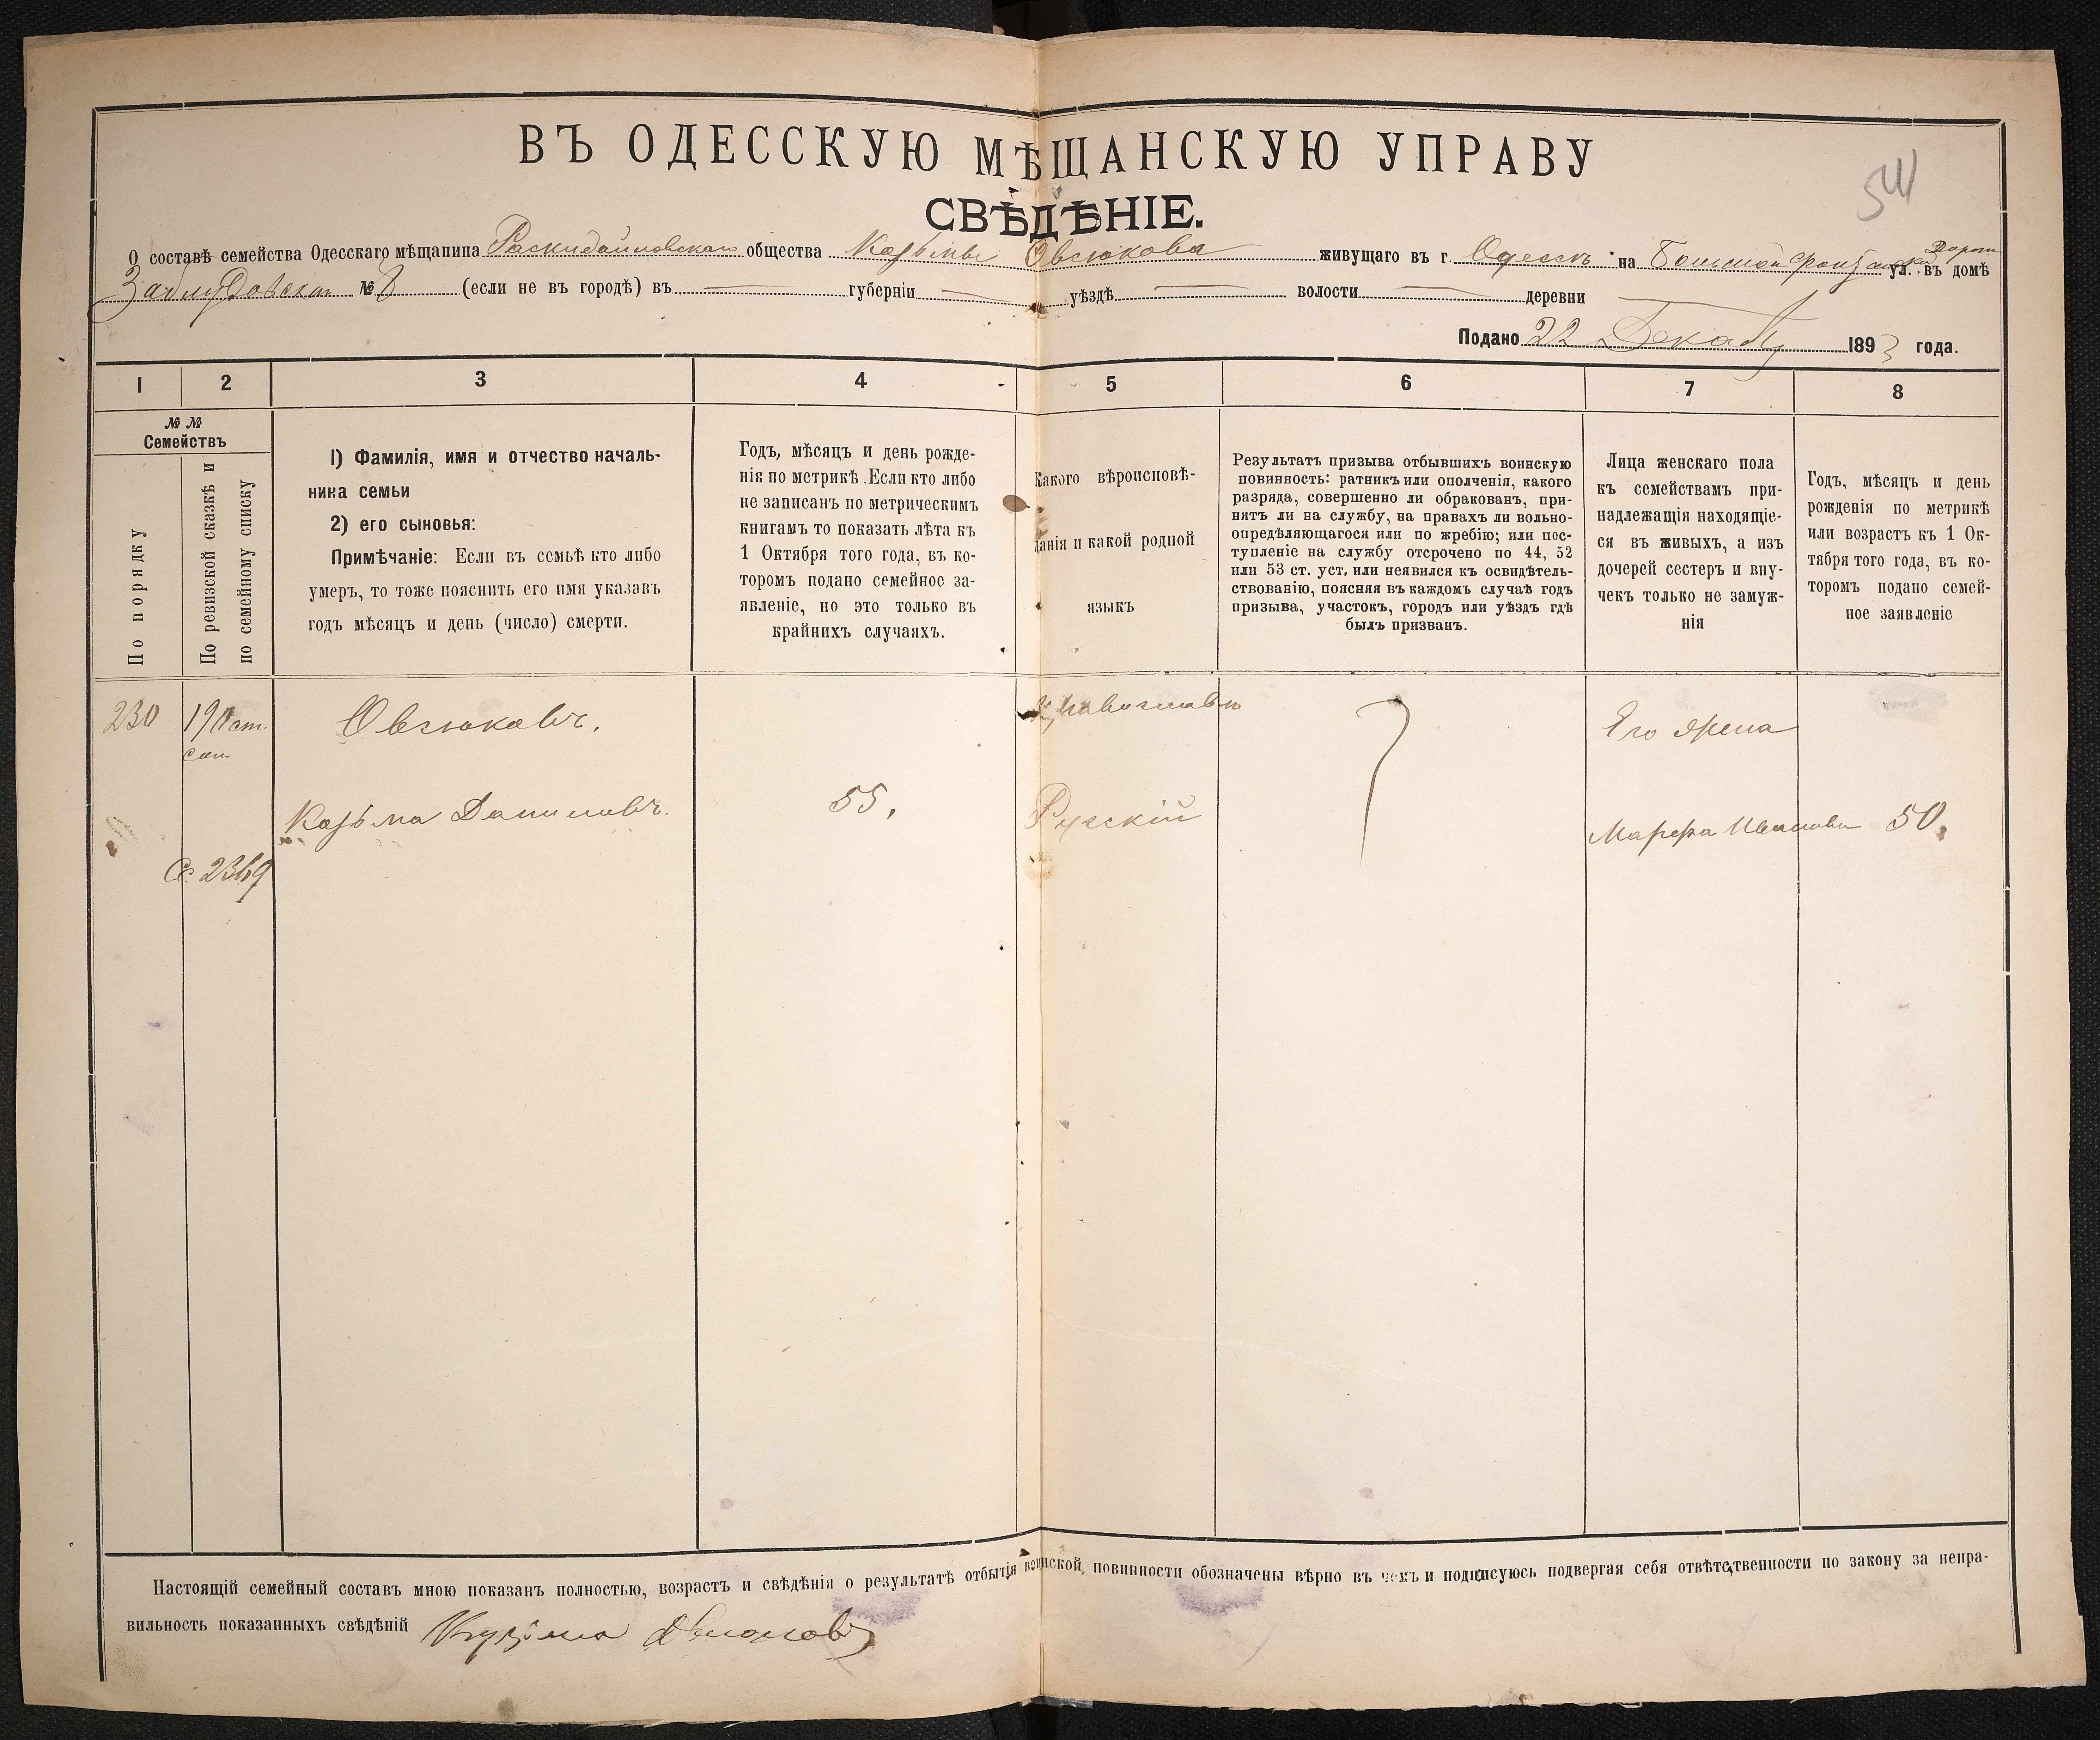 ВЪ ОДЕССКУЮ МѢЩАНСКУЮ УПРАВУ
541
СВѢДѢНІЕ.
О составѣ семейства Одесскаго мѣщанина Раскидайловскаго общества Козьмы Овсюкова живущаго въ г. Одессѣ на Большой Фонтанской ул. въ домѣ
Заблудовскаго № 8 (если не въ городѣ) въ — губерніи — уѣздѣ — волости — деревни —
Подано 22 Декабр 1893 года.
1 2 3 4 5 6 7 8
№ №
Семействъ
По порядку
По ревизской сказкѣ и
по семейному списку
1) Фамилія, имя и отчество началь-
ника семьи
2) его сыновья:
Примѣчаніе: Если въ семьѣ кто либо
умеръ, то тоже пояснить его имя указавъ
годъ мѣсяцъ и день (число) смерти.
Годъ, мѣсяцъ и день рожде-
нія по метрикѣ .Если кто либо
не записанъ по метрическимъ
книгамъ то показать лѣта къ
1 Октября того года, въ ко-
торомъ подано семейное за-
явленіе, но это только въ
крайнихъ случаяхъ.
Какого вѣроисповѣ-
данія и какой родной
языкъ
Результатъ призыва отбывшихъ воинскую
повинность: ратникъ или ополченія, какого
разряда, совершенно ли обракованъ, при-
нятъ ли на службу, на правахъ ли вольно-
опредѣляющагося или по жребію; или пос-
тупленіе на службу отсрочено по 44, 52
или 53 ст. уст. или неявился къ освидѣтель-
ствованію, поясняя въ каждомъ случаѣ годъ
призыва, участокъ, городъ или уѣздъ гдѣ
былъ призванъ.
Лица женскаго пола
къ семействамъ при-
надлежащія находящіе-
ся въ живыхъ, а изъ
дочерей сестеръ и вну-
чекъ только не замуж-
нія
Годъ, мѣсяцъ и день
рожденія по метрикѣ
или возрастъ къ 1 Ок-
тября того года, въ ко-
торомъ подано семей-
ное заявленіе
230
Овсюковъ.
Православн
Его жена
Козьма Даниловъ.
55.
Русскій
Марфа Иванова
50.
Сс 2369
Настоящій семейный составъ мною показанъ полностью, возрастъ и свѣдѣнія о результатѣ отбытія воинской повинности обозначены вѣрно въ чемъ и подписуюсь подвергая себя отвѣтственности по закону за непра-
вильность показанныхъ свѣдѣній Кузьма Овсюковъ